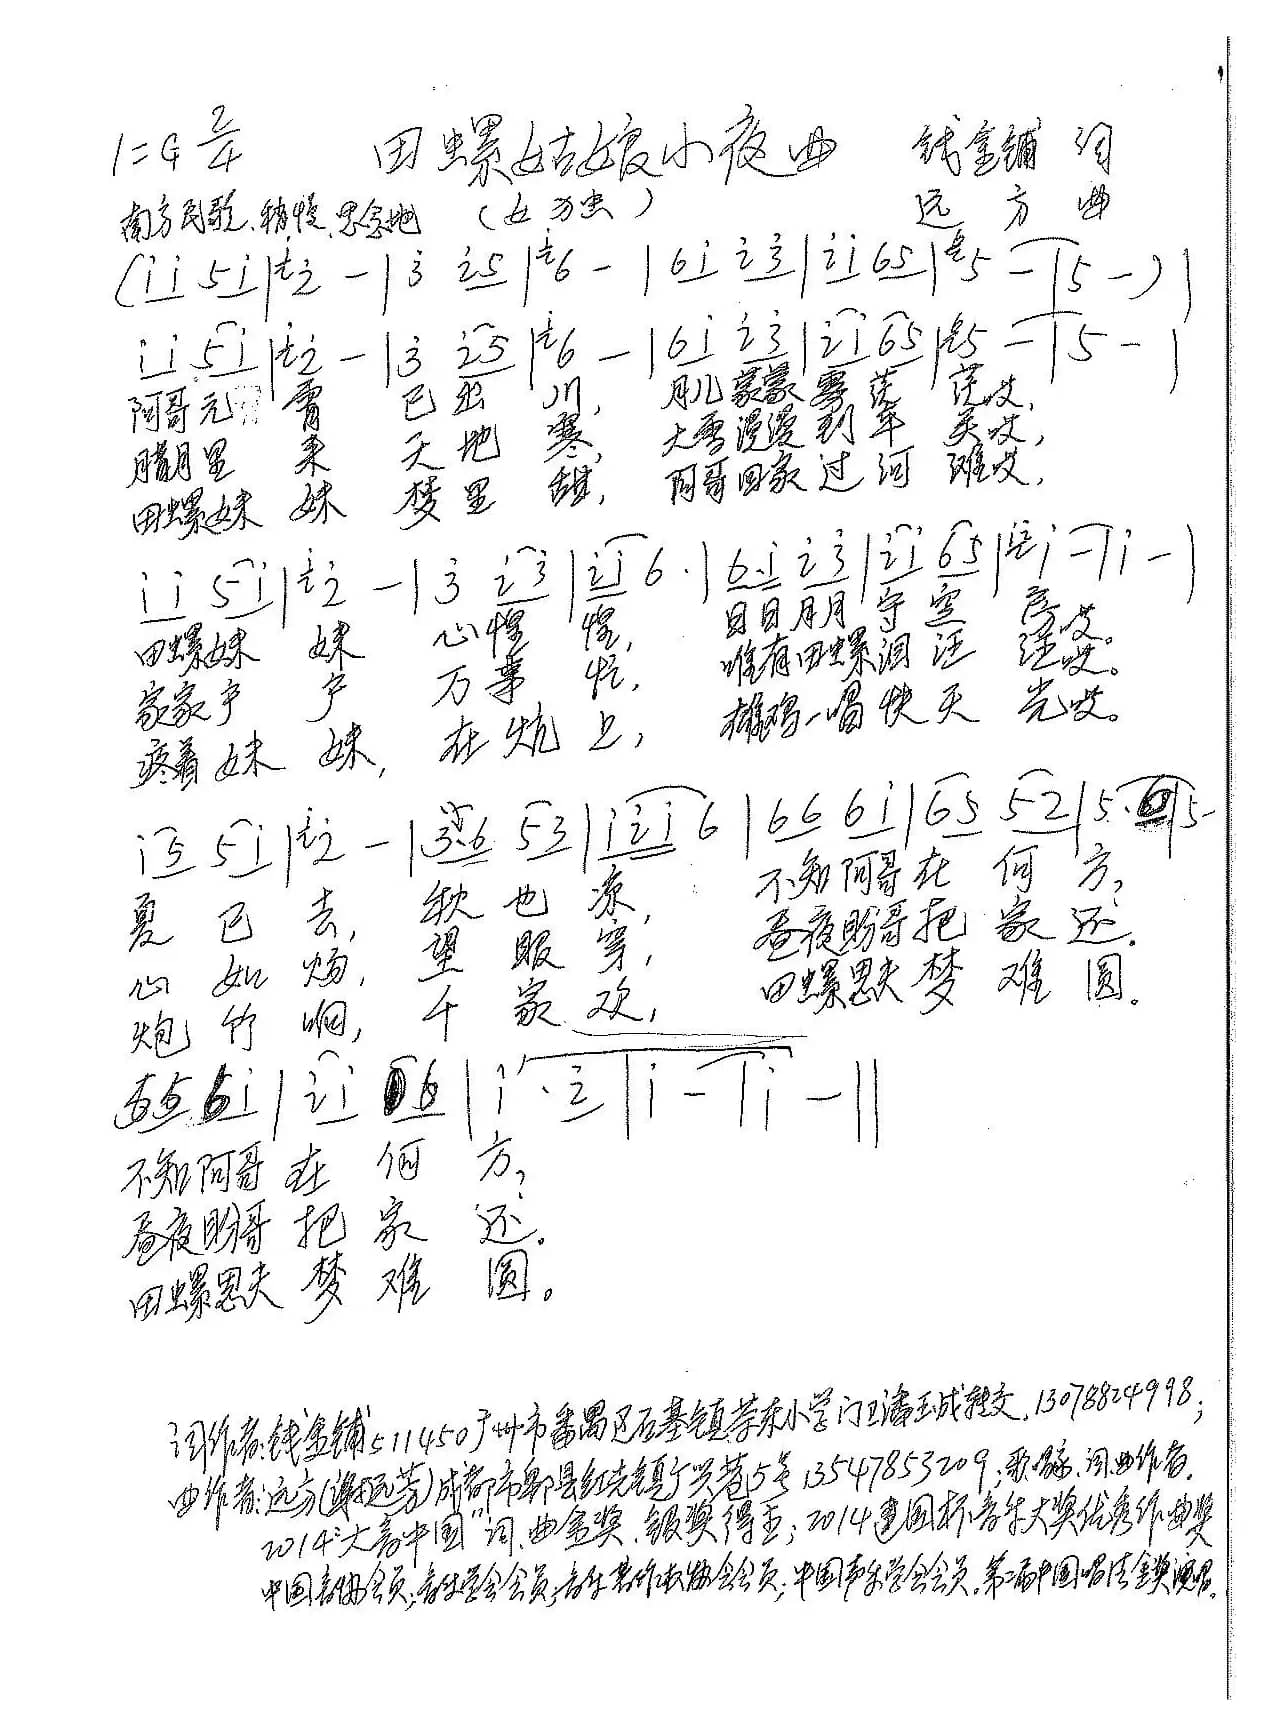 1=G 2/4 田螺姑娘小夜曲 钱金铺 词
南方民歌、稍慢、思念地 (女独) 远方 曲
(i i 5 i | 2 - | 3 2 5 | 6 - | 6 i 2 3 | 2 i 6 5 | 5 - | 5 - ) |
i i 5 i | 2 - | 3 2 5 | 6 - | 6 i 2 3 | 2 i 6 5 | 5 - | 5 - |
阿哥元宵 已出川, 月儿蒙蒙雾茫茫哎,
腊月里来 天地寒, 大雪漫漫到年关哎,
田螺妹妹 梦里甜, 阿哥回家过河难哎,
i i 5 i | 2 - | 3 2 3 | 2 i 6 · | 6 · i 2 3 | 2 i 6 5 | i - | i - |
田螺妹妹 心惶惶, 日日月月守空房哎。
家家户户 万事忙, 唯有田螺泪汪汪哎。
疼着妹妹, 在炕上, 雄鸡一唱快天光哎。
i 5 5 i | 2 - | 3 · 6 5 3 | i 2 i 6 | 6 6 6 i | 6 5 5 2 | 5 · 6 | 5 -
夏已去, 秋也凉, 不知阿哥在何方,
心如炀, 望眼穿, 昼夜盼哥把家还.
炮竹响, 千家欢, 田螺思夫梦难圆。
5 5 6 i | 2 i 6 | i · 2 | i - | i - ||
不知阿哥在何方,
昼夜盼哥把家还.
田螺思夫梦难圆。
词作者:钱金铺511450广州市番禺区石基镇荣东小学门卫潘玉成转交. 13078824998;
曲作者:远方(谢远芳)成都市郫县红光镇广兴巷5号13547853209;歌唱家、词曲作者.
2014"大音中国"词、曲金奖、银奖得主;2014建国杯音乐大奖优秀作曲奖
中国音协会员;音乐学会会员;音乐著作权协会会员;中国声乐学会会员.第二届中国唱法金奖